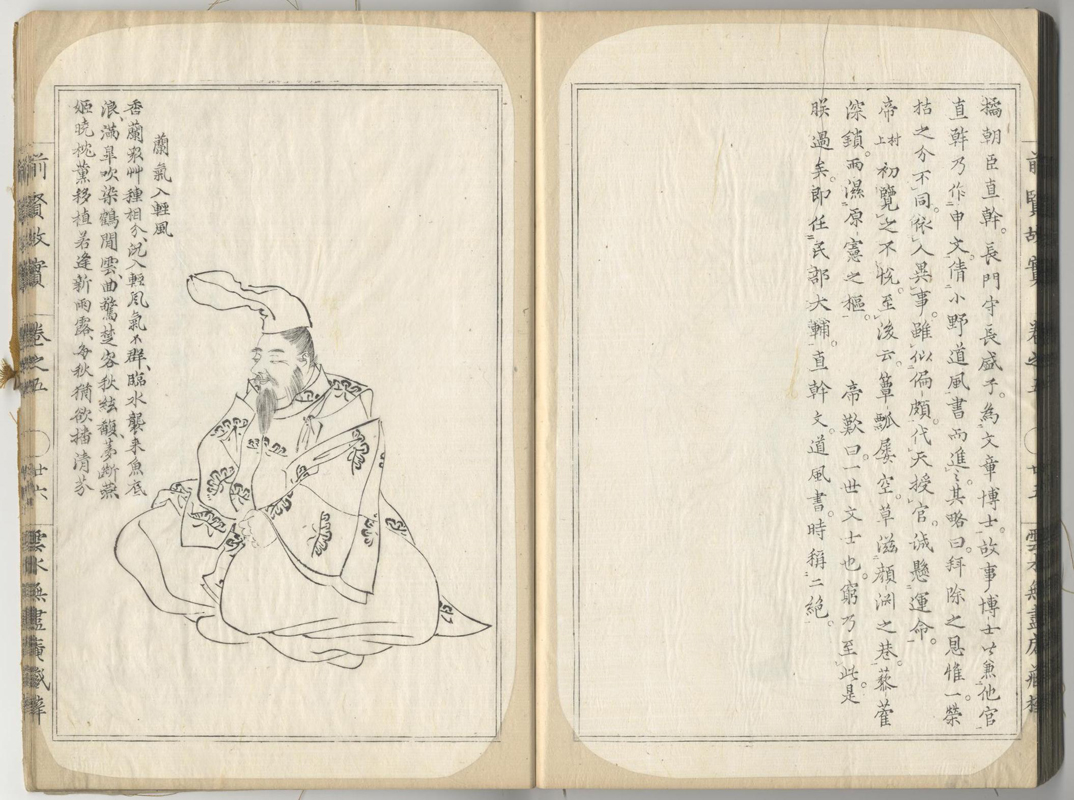 橘朝臣直幹。長門守長盛子。為文章博士。故事博士以兼他官
直幹乃作申文。倩小野道風書而進之。其略曰。拜除之恩惟一。榮
枯之分不同。依人異事。雖似偏頗。代天授官。誠懸運命。
帝村上初覽之不悅。至後云。簞瓢屢空。草滋顏淵之巷。藜藿
深鎖。雨濕原憲之樞。 帝歎曰。一世文士也。窮乃至此。是
朕過矣。即任民部大輔。直幹文。道風書。時稱二絕。
前賢故實 卷之五 廿五 雲水無盡庵藏梓
蘭氣入輕風
香蘭衆艸種相分、況入輕風氣不群、臨水襲來魚底
浪、滿皐吹染鶴間雲、曲驚楚客秋絃馥、夢斷燕
姬曉枕薰、移植若逢新雨露、每秋猶欲播清芬
前賢故實 卷之五 廿六 雲水無盡庵藏梓